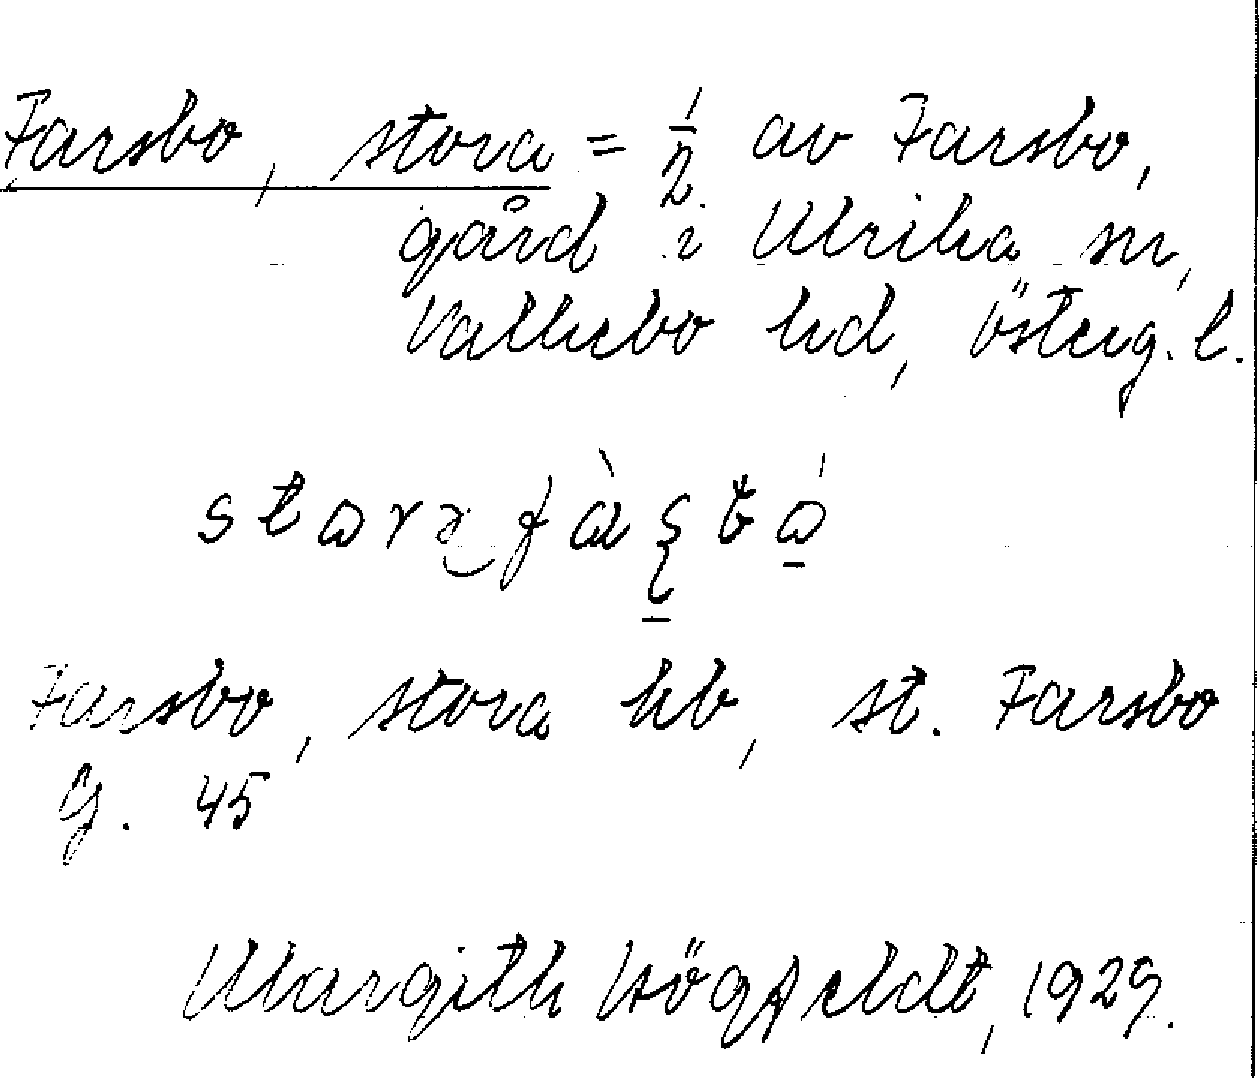 Farsbo, stora = 1/2 av Farsbo,
gård i Ulrika sn,
Valkebo hd, Österg. l.
Farsbo, stora kb, st. Farsbo
J. 45
Margith Högfeldt, 1929.